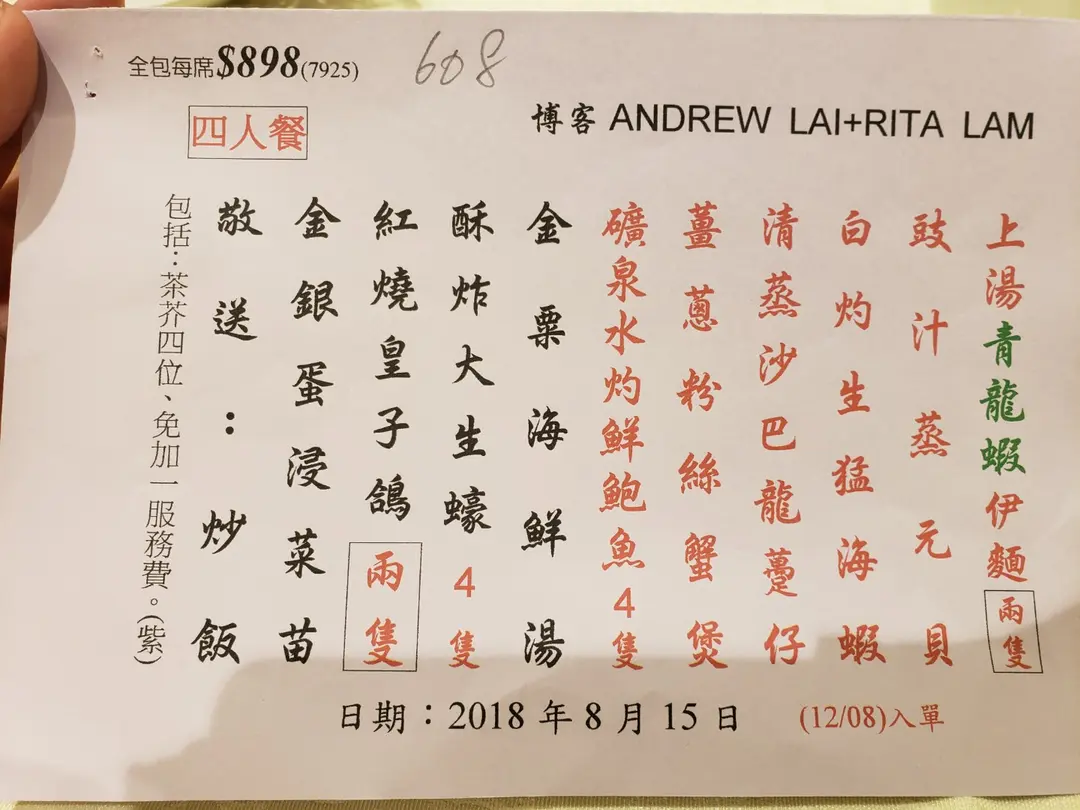 全包每席$898(7925)
608
四人餐
博客 ANDREW LAI+RITA LAM
上湯青龍蝦伊麵兩隻
豉汁蒸元貝
白灼生猛海蝦
清蒸沙巴龍躉仔
薑蔥粉絲蟹煲
礦泉水灼鮮鮑魚4隻
金粟海鮮湯
酥炸大生蠔4隻
紅燒皇子鴿兩隻
金銀蛋浸菜苗
敬送：炒飯
包括：茶芥四位、免加一服務費。(紫)
日期：2018 年 8 月 15 日
(12/08)入單